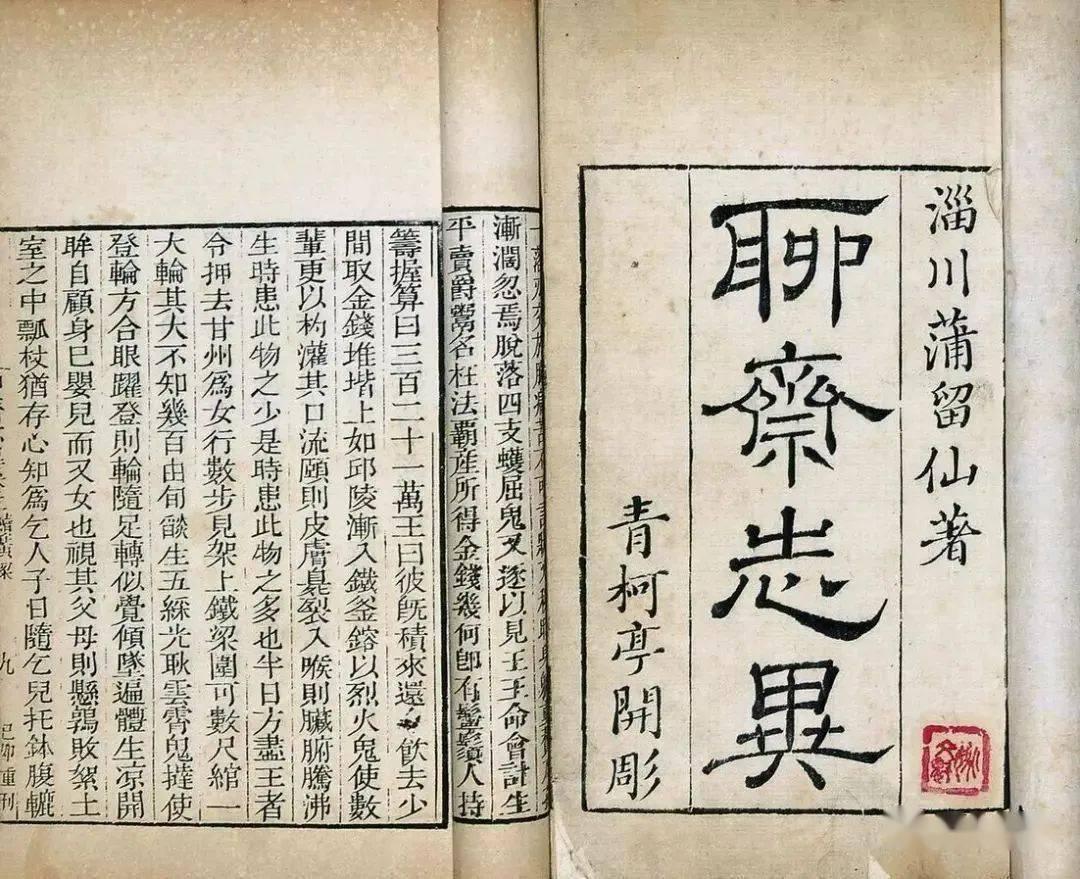 淄川蒲留仙著
聊齋志異
青柯亭開彫
漸濶忽焉脫落四支蠖屈鬼又逐以見王王命會計生
平賣爵鬻名枉法覇產所得金錢幾何卽有鬡鬚人持
籌握算曰三百二十一萬王曰彼旣積來還令飲去少
間取金錢堆堦上如邱陵漸入鐵釜鎔以烈火鬼使數
輩更以杓灌其口流頤則皮膚臰裂入喉則臟腑騰沸
生時患此物之少是時患此物之多也半日方盡王者
令押去甘州爲女行數步見架上鐵梁圍可數尺綰一
大輪其大不知幾百由旬燄生五綵光耿雲霄鬼撻使
登輪方合眼躍登則輪隨足轉似覺傾墜遍體生凉開
眸自顧身已嬰兒而又女也視其父母則懸鶉敗絮土
室之中瓢杖猶存心知爲乞人子日隨乞兒托鉢腹轆
九
己卯重刊